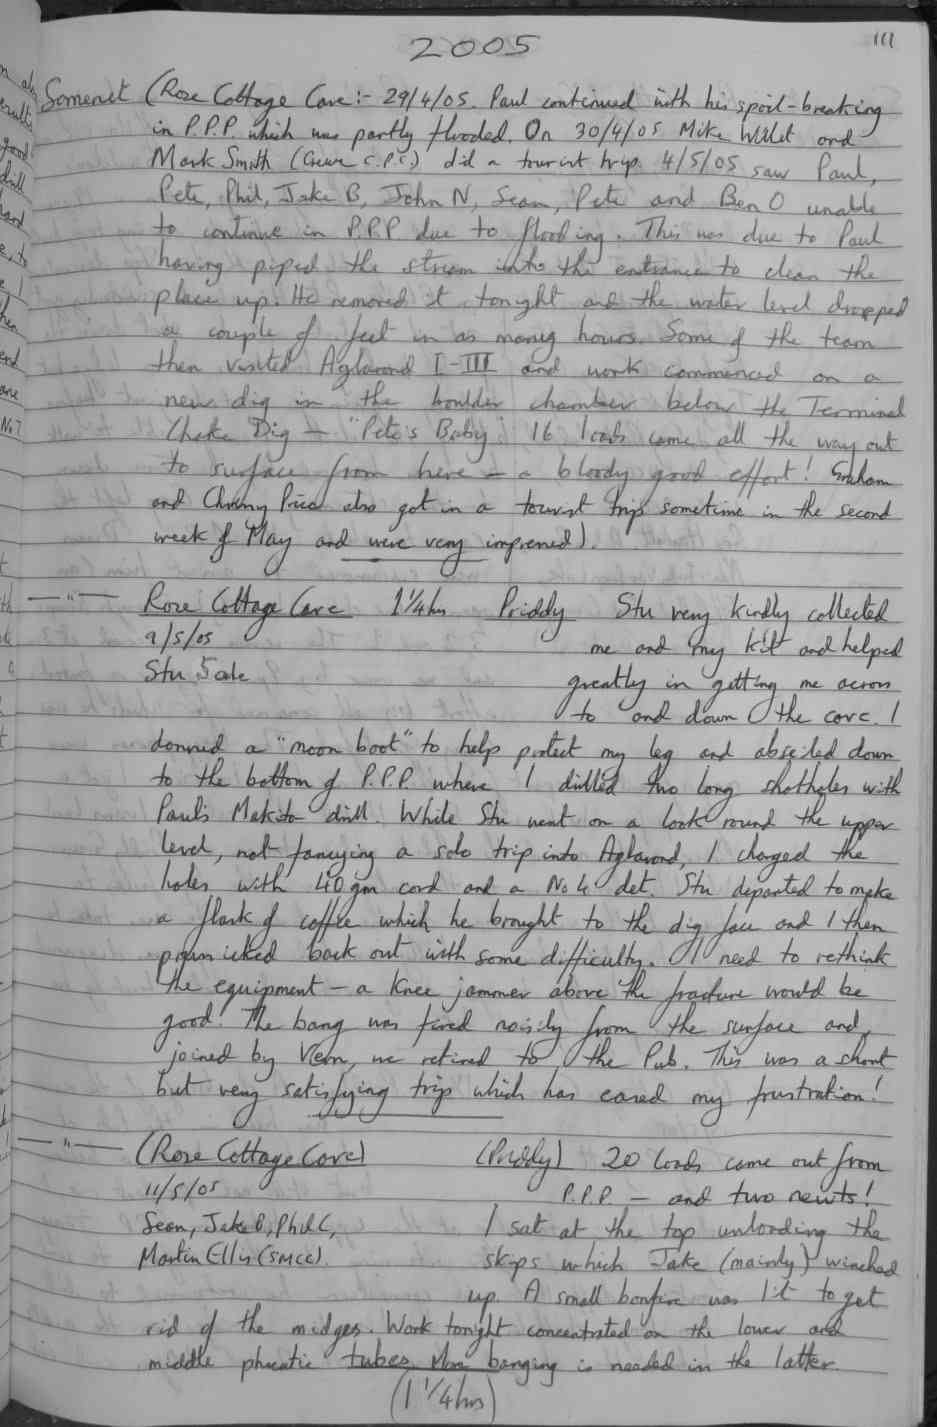 111
2005
Somerset (Rose Cottage Cave:- 29/4/05. Paul continued with his spoil-breaking
in P.P.P. which was partly flooded. On 30/4/05 Mike Willet and
Mark Smith (Crewe C.P.C) did a tourist trip. 4/5/05 saw Paul,
Pete, Phil, Jake B, John N, Sean, Pete and Ben O unable
to continue in P.P.P. due to flooding. This was due to Paul
having piped the stream into the entrance to clean the
place up. He removed it tonight and the water level dropped
a couple of feet in as many hours. Some of the team
then visited Aglarond I-III and work commenced on a
new dig in the boulder chamber below the Terminal
Choke Dig - "Pete's Baby". 16 loads came all the way out
to surface from here - a bloody good effort! Graham
and Price also got in a tourist trip sometime in the second
week of May and were very impressed).
—"— Rose Cottage Cave 1¼hrs Priddy Stu very kindly collected
9/5/05 me and my kit and helped
Stu Sale greatly in getting me across
to and down the cave. I
donned a "moon boot" to help protect my leg and abseiled down
to the bottom of P.P.P. where I drilled two long shotholes with
Paul's Makita drill. While Stu went on a look round the upper
level, not fancying a solo trip into Aglarond, I charged the
holes with 40gm cord and a No 4 det. Stu departed to make
a flask of coffee which he brought to the dig face and I then
prusicked back out with some difficulty. I need to rethink
the equipment - a knee jammer above the fracture would be
good! The bang was fired noisily from the surface and,
joined by Vern, we retired to the Pub. This was a short
but very satisfying trip which has eased my frustration!
—"— (Rose Cottage Cave) (Priddy) 20 loads came out from
11/5/05 P.P.P. - and two newts!
Sean, Jake B, Phil C, I sat at the top unloading the
Martin Ellis (SMCC). skips which Jake (mainly) winched
up. A small bonfire was lit to get
rid of the midges. Work tonight concentrated on the lower and
middle phreatic tubes. More banging is needed in the latter.
(1¼hrs)